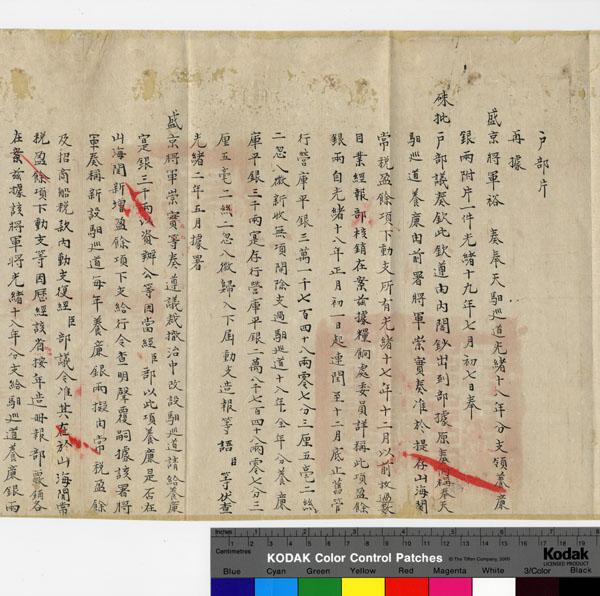 戶部片
再據
盛京將軍裕 奏奉天驛巡道光緒十八年分支領養廉
銀兩附片一件光緒十九年七月初七日奉
硃批戶部議奏欽此欽遵由內閣鈔出到部據原奏內稱奉天
驛巡道養廉由前署將軍崇實奏准於提存山海關
常稅盈餘項下動支所有光緒十七年十二月以前放過數
目業經報部核銷在案茲據糧餉處委員詳稱此項盈餘
銀兩自光緒十八年正月初一日起連閏至十二月底止舊管
行營庫平銀三萬一千七百四十八兩零七分三厘五毫二絲
二忽八微新收無項開除支過驛巡道十八年全年分養廉
庫平銀三千兩寔存行營庫平銀二萬八千七百四十八兩零七分三
厘五毫二絲二忽八微歸入下屆動支造報等語臣等伏查
光緒二年五月據署
盛京將軍崇實等奏遵議裁撤治中改設驛巡道請給養廉
寔銀三千兩以資辦公等因當經臣部以此項養廉是否在
山海關新增盈餘項下支給行令查明聲覆嗣據該署將
軍奏稱新設驛巡道每年養廉銀兩擬由常稅盈餘
及招商船稅款內動支復經臣部議令准其在於山海關常
稅盈餘項下動支等因歷經該省按年造冊報部覈銷各
在案茲據該將軍將光緒十八年分支給驛巡道養廉銀兩
Inches
Centimetres
KODAK Color Control Patches
© The Tiffen Company, 2000
Kodak
LICENSED PRODUCT
Blue Cyan Green Yellow Red Magenta White 3/Color Black